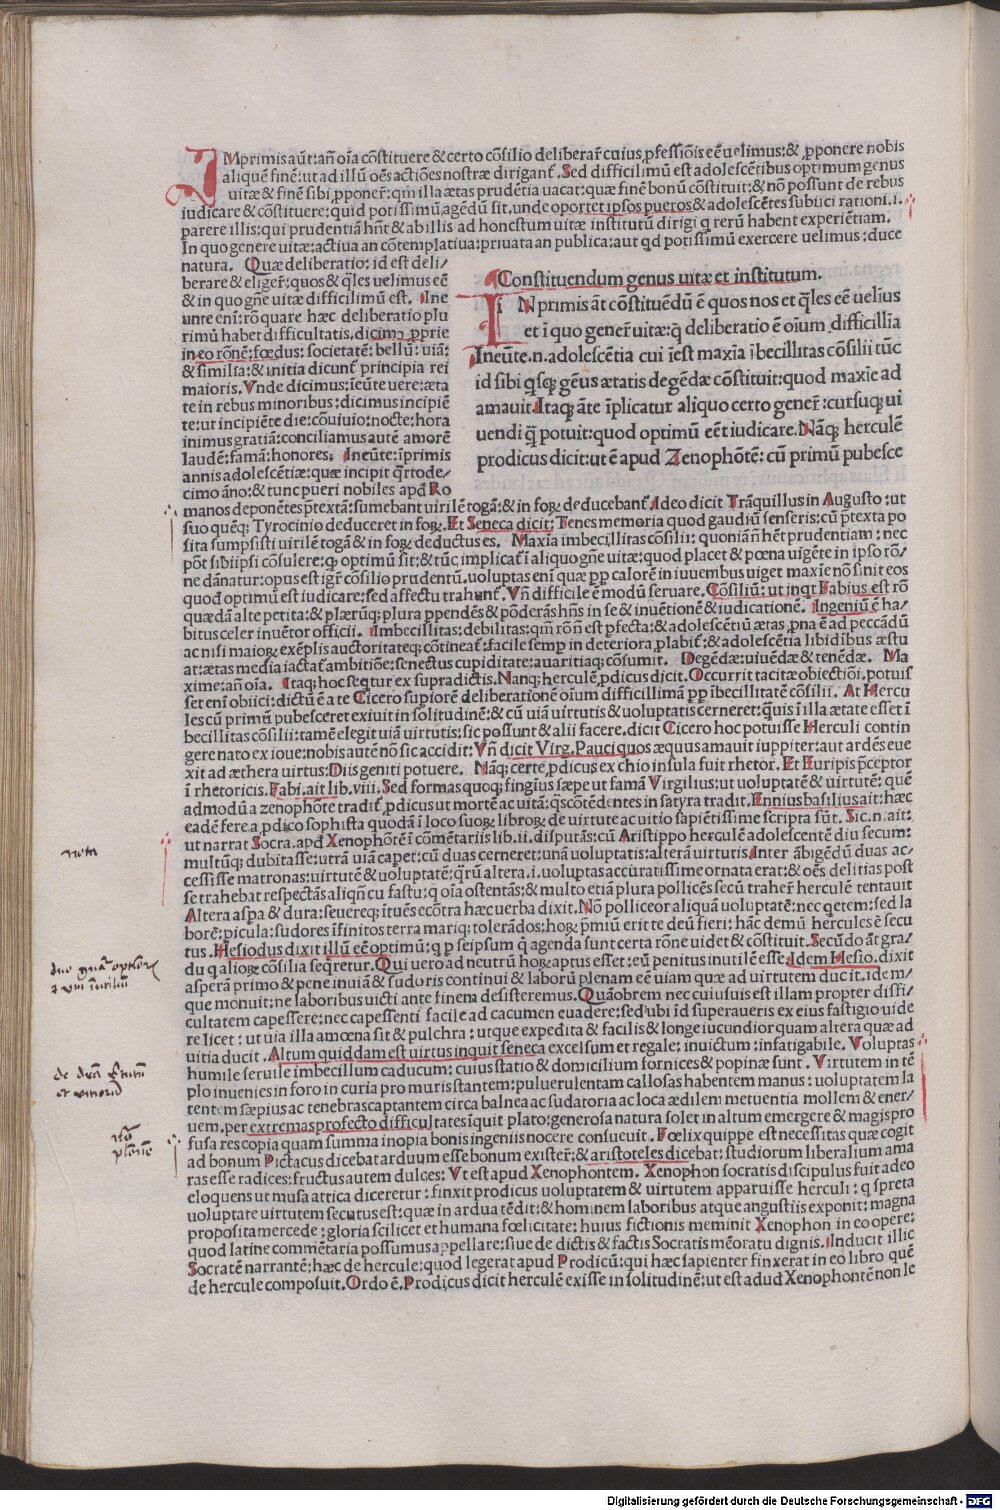 IMprimis aūt: añ oīa cōstituere & certo cōsilio deliberar̄ cuius pfessiōis eē uelimus: & pponere nobis
aliquē finē: ut ad illū oēs actiōes nostræ dirigant̄. Sed difficilimū est adolescētibus optimum genus
uitæ & finē sibi pponer̄: qm̄ illa ætas prudētia uacat: quæ finē bonū cōstituit: & nō possunt de rebus
iudicare & cōstituere: quid potissimū agēdū sit. unde oportet ipsos pueros & adolescētes subiici rationi. i.
parere illis: qui prudentiā hñt & ab illis ad honestum uitæ institutū dirigi q rerū habent experiētiam.
In quo genere uitæ: actiua an cōtemplatiua: priuata an publica: aut qd potissimū exercere uelimus: duce
natura. Quæ deliberatio: id est deli/
berare & eliger̄: quos & q̄les uelimus eē
& in quo gñe uitæ difficilimū est. Ine
unte eni: rō quare hæc deliberatio plu
rimū habet difficultatis. dicimᵒ pprie
in eo rōnē: fœdus: societatē: bellū: uiā:
& similia: & initia dicunt̄ principia rei
maioris. Vnde dicimus: ieūte uere: æta
te in rebus minoribus: dicimus incipiē
te: ut incipiēte die: cōuiuio: nocte: hora
inimus gratiā: conciliamus autē amorē
laudē: famā: honores. Ineūte: īprimis
annis adolescētiæ: quæ incipit q̄rtode/
cimo āno: & tunc pueri nobiles apd̄ Ro
Constituendum genus uitæ et institutum.
IN primis āt cōstituēdū ē quos nos et q̄les eē uelīus
et ī quo gener̄ uitæ: q̄ deliberatio ē oīum difficillīa
Ineūte. n. adolescētia cui īest maxīa ībecillitas cōsilii tūc
id sibi qsq; gēus ætatis degēdæ cōstituit: quod maxīe ad
amauit. Itaq; āte īplicatur aliquo certo gener̄: cursuq; ui
uendi q̄ potuit: quod optimū eēt iudicare. Nāq; herculē
prodicus dicit: ut ē apud Zenophōtē: cū primū pubesce
manos deponētes ptextā: sumebant uirilē togā: & in foꝝ deducebant̄. Ideo dicit Trāquillus in Augusto: ut
suo quēq; Tyrocinio deduceret in foꝝ. Et Seneca dicit: Tenes memoria quod gaudiū senseris: cū ptexta po
sita sumpsisti uirilē togā & in foꝝ deductus es. Maxīa imbecillitas cōsilii: quoniā ñ hēt prudentiam: nec
pōt sibi ipsi cōsulere: qꝫ optimū sit: & tūc implicat̄ ī aliquo gñe uitæ: quod placet & pœna uigēte in ipso rō/
ne dānatur: opus est igr̄ cōsilio prudentū. uoluptas eni quæ pp calorē in iuuenibus uiget maxīe nō sinit eos
quod optimū est iudicare: sed affectu trahunt̄. Vñ difficile ē modū seruare. Cōsiliū: ut inqt Fabius est rō
quædā alte petita: & plærūq; plura ppendēs & pōderās hñs in se & inuētionē & iudicationē. Ingeniū ē ha/
bitus celer inuētor officii. Imbecillitas: debilitas: qm̄ rōñ est pfecta: & adolescētiū ætas prona ē ad peccādū
ac nisi maioꝝ exēplis auctoritateq; cōtineat̄: facile semp in deteriora plabit̄: & adolescētia libidibus æstu
at: ætas media iactat̄ ambitiōe: senectus cupiditate: auaritiaq; cōsumit. Degēdæ: uiuēdæ & tenēdæ. Ma
xime: añ oīa. Itaq; hoc seqtur ex supradictis. Nanq; herculē pdicus dicit. Occurrit tacitæ obiectiōi. potuis
set eni obiici: dictū ē a te Cicero supiorē deliberationē oīum difficillimā pp ībecillitatē cōsilii. At Hercu
les cū primū pubesceret exiuit in solitudinē: & cū uiā uirtutis & uoluptatis cerneret: quis ī illa ætate esset ī
becillitas cōsilii: tamē elegit uiā uirtutis: sic possūt & alii facere. dicit Cicero hoc potuisse Herculi contin
gere nato ex ioue: nobis autē nō sic accidit: Vñ dicit Virg. Pauci quos æquus amauit iuppiter: aut ardēs eue
xit ad æthera uirtus: Diis geniti potuere. Nāq; certe pdicus ex chio insula fuit rhetor. Et Euripis pceptor
ī rhetoricis. Fabi. ait lib. viii. Sed formas quoq; fingius sæpe ut famā Virgilius: ut uoluptatē & uirtutē: quē
admodū a zenophōte tradit̄ pdicus ut mortē ac uitā: qs cōtēdentes in satyra tradit. Ennius basilius ait: hæc
eadē fere a pdico sophista quodā ī loco suoꝝ libroꝝ de uirtute ac uitio sapiētissime scripta sūt. Sic. n. ait:
ut narrat Socra. apd̄ Xenophōtē ī cōmētariis lib. ii. disputās: cū Aristippo herculē adolescentē diu secum:
multūq; dubitasse: utrā uiā capet: cū duas cerneret: unā uoluptatis: alterā uirtutis. Inter ābigēdū duas ac/
cessisse matronas: uirtutē & uoluptatē: qrū altera. i. uoluptas accuratissime ornata erat: & oēs delitias post
se trahebat respectās aliqn̄ cu fastu: q oīa ostentās: & multo etiā plura pollicēs secū traher̄ herculē tentauit
Altera aspa & dura: seuereq; ituēs ecōtra hæc uerba dixit. Nō polliceor aliquā uoluptatē: nec qetem: sed la
borē: picula: sudores ifinitos terra mariq; tolerādos: hoꝝ pmiū erit te deū fieri: hāc demū hercules ē secu
tus. Hesiodus dixit illū eē optimū: q p seipsum q̄ agenda sunt certa rōne uidet & cōstituit. Secūdo āt gra/
du q alioꝝ cōsilia seqretur. Qui uero ad neutrū hoꝝ aptus esset: eū penitus inutilē esse. Idem Hesio. dixit
asperā primo & pene inuiā & sudoris continui & laborū plenam eē uiam quæ ad uirtutem ducit. idem/
que monuit: ne laboribus uicti ante finem desisteremus. Quāobrem nec cuiusuis est illam propter diffi/
cultatem capessere: nec capessenti facile ad cacumen euadere: sed ubi id superaueris ex eius fastigio uide
re licet: ut uia illa amœna sit & pulchra: utque expedita & facilis & longe iucundior quam altera quæ ad
uitia ducit. Altum quiddam est uirtus inquit seneca excelsum et regale: inuictum: infatigabile. Voluptas
humile seruile imbecillum caducum: cuius statio & domicilium fornices & popinæ sunt. Virtutem in tē
plo inuenies in foro in curia pro muris stantem: puluerulentam callosas habentem manus: uoluptatem la
tentem sæpius ac tenebras captantem circa balnea ac sudatoria ac loca ædilem metuentia mollem & ener/
uem. per extremas profecto difficultates īquit plato: generosa natura solet in altum emergere & magis pro
fusa res copia quam summa inopia bonis ingeniis nocere consueuit. Fœlix quippe est necessitas quæ cogit
ad bonum Pictacus dicebat arduum esse bonum exister̄: & aristoteles dicebat: studiorum liberalium ama
ras esse radices: fructus autem dulces: Vt est apud Xenophontem. Xenophon socratis discipulus fuit adeo
eloquens ut musa attica diceretur: finxit prodicus uoluptatem & uirtutem apparuisse herculi: q spreta
uoluptate uirtutem secutus est: quæ in ardua tēdit: & hominem laboribus atque angustiis exponit: magna
proposita mercede: gloria scilicet et humana fœlicitate: huius fictionis meminit Xenophon in eo opere:
quod latine commētaria possumus appellare: siue de dictis & factis Socratis mēoratu dignis. Inducit illic
Socratē narrantē: hæc de hercule: quod legerat apud Prodicū: qui hæc sapienter finxerat in eo libro quē
de hercule composuit. Ordo ē. Prodicus dicit herculē exisse in solitudinē: ut est adud Xenophontē non le
nota
Digitalisierung gefördert durch die Deutsche Forschungsgemeinschaft - DFG